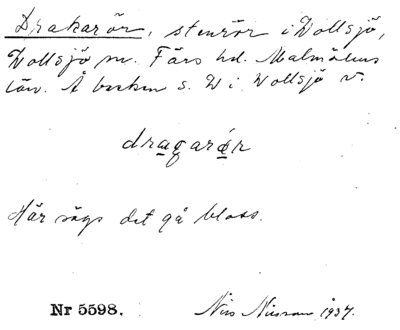 Drakarör, stenrör i Vollsjö,
Vollsjö sn. Färs hd. Malmöhus
län. Å backen s. V i Vollsjö v.
dragarör
Här sägs det gå bloss.
Nr 5598. Nils Nilsson 1937.